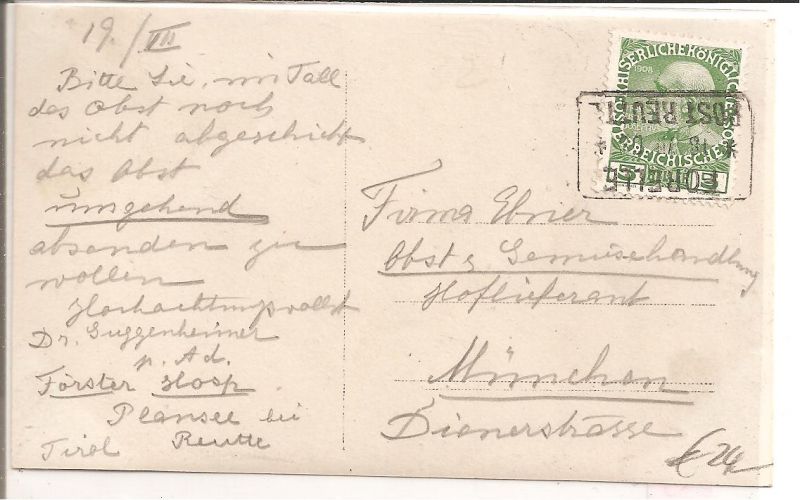 19./VII
Bitte Sie, im Fall
das Obst noch
nicht abgeschickt
das Obst
umgehend
absenden zu
wollen
Hochachtungsvollst
Dr. Guggenheimer
p. Ad.
Förster Hosp
Plansee bei
Reutte
Tirol
1908
REICHISCHE POST
POST REUTTE
FORELLE
Firma Ebner
Obst & Gemüsehandlung
Hoflieferant
München
Dienerstrasse